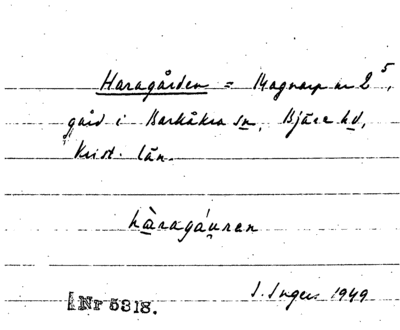 Haragården = Magnarp nr 2⁵,
gård i Barkåkra sn, Bjäre hd,
Krist. län.
hàragáu̯ren
Nr 5318. S. Ingers 1949